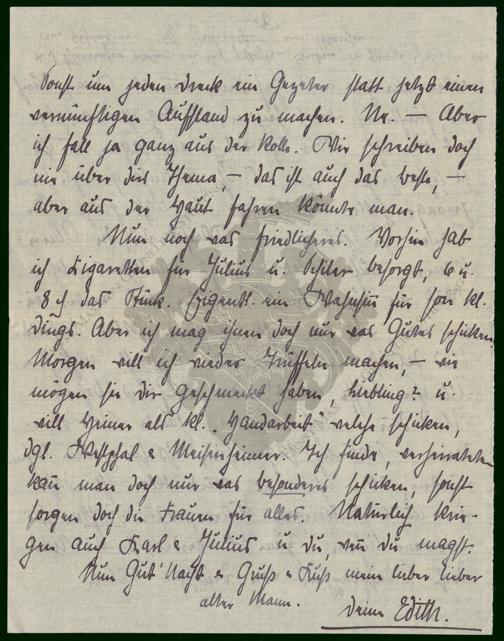 sonst um jeden Dreck ein Gezeter statt jetzt einen
vernünftigen Aufstand zu machen. Na. — Aber
ich fall ja ganz aus der Rolle. Wir schreiben doch
nie über dies Thema, — das ist auch das beste, —
aber aus der Haut fahren könnte man.
Nun noch was friedlicheres. Vorhin hab
ich Zigaretten für Julius u. besorgt, 6 u.
8 das Stück. Eigentl. ein Wahnsinn für son kl.
Dings. Aber ich mag ihnen doch nur was Gutes schicken.
Morgen will ich wieder Trüffeln machen, — wie
mögen sie dir geschmeckt haben, Liebling? u.
will Heiner als kl. „Handarbeit" welche schicken,
dgl. Westphal & Meisenheimer. Ich finde, verheirateten
kann man doch nur was besonderes schicken, sonst
sorgen doch die Frauen für alles. Natürlich krie-
gen auch Karl & Julius u. du, wenn du magst.
Nun Gut' Nacht & Gruß & Kuß mein lieber lieber
alter Mann.
Deine Edith.